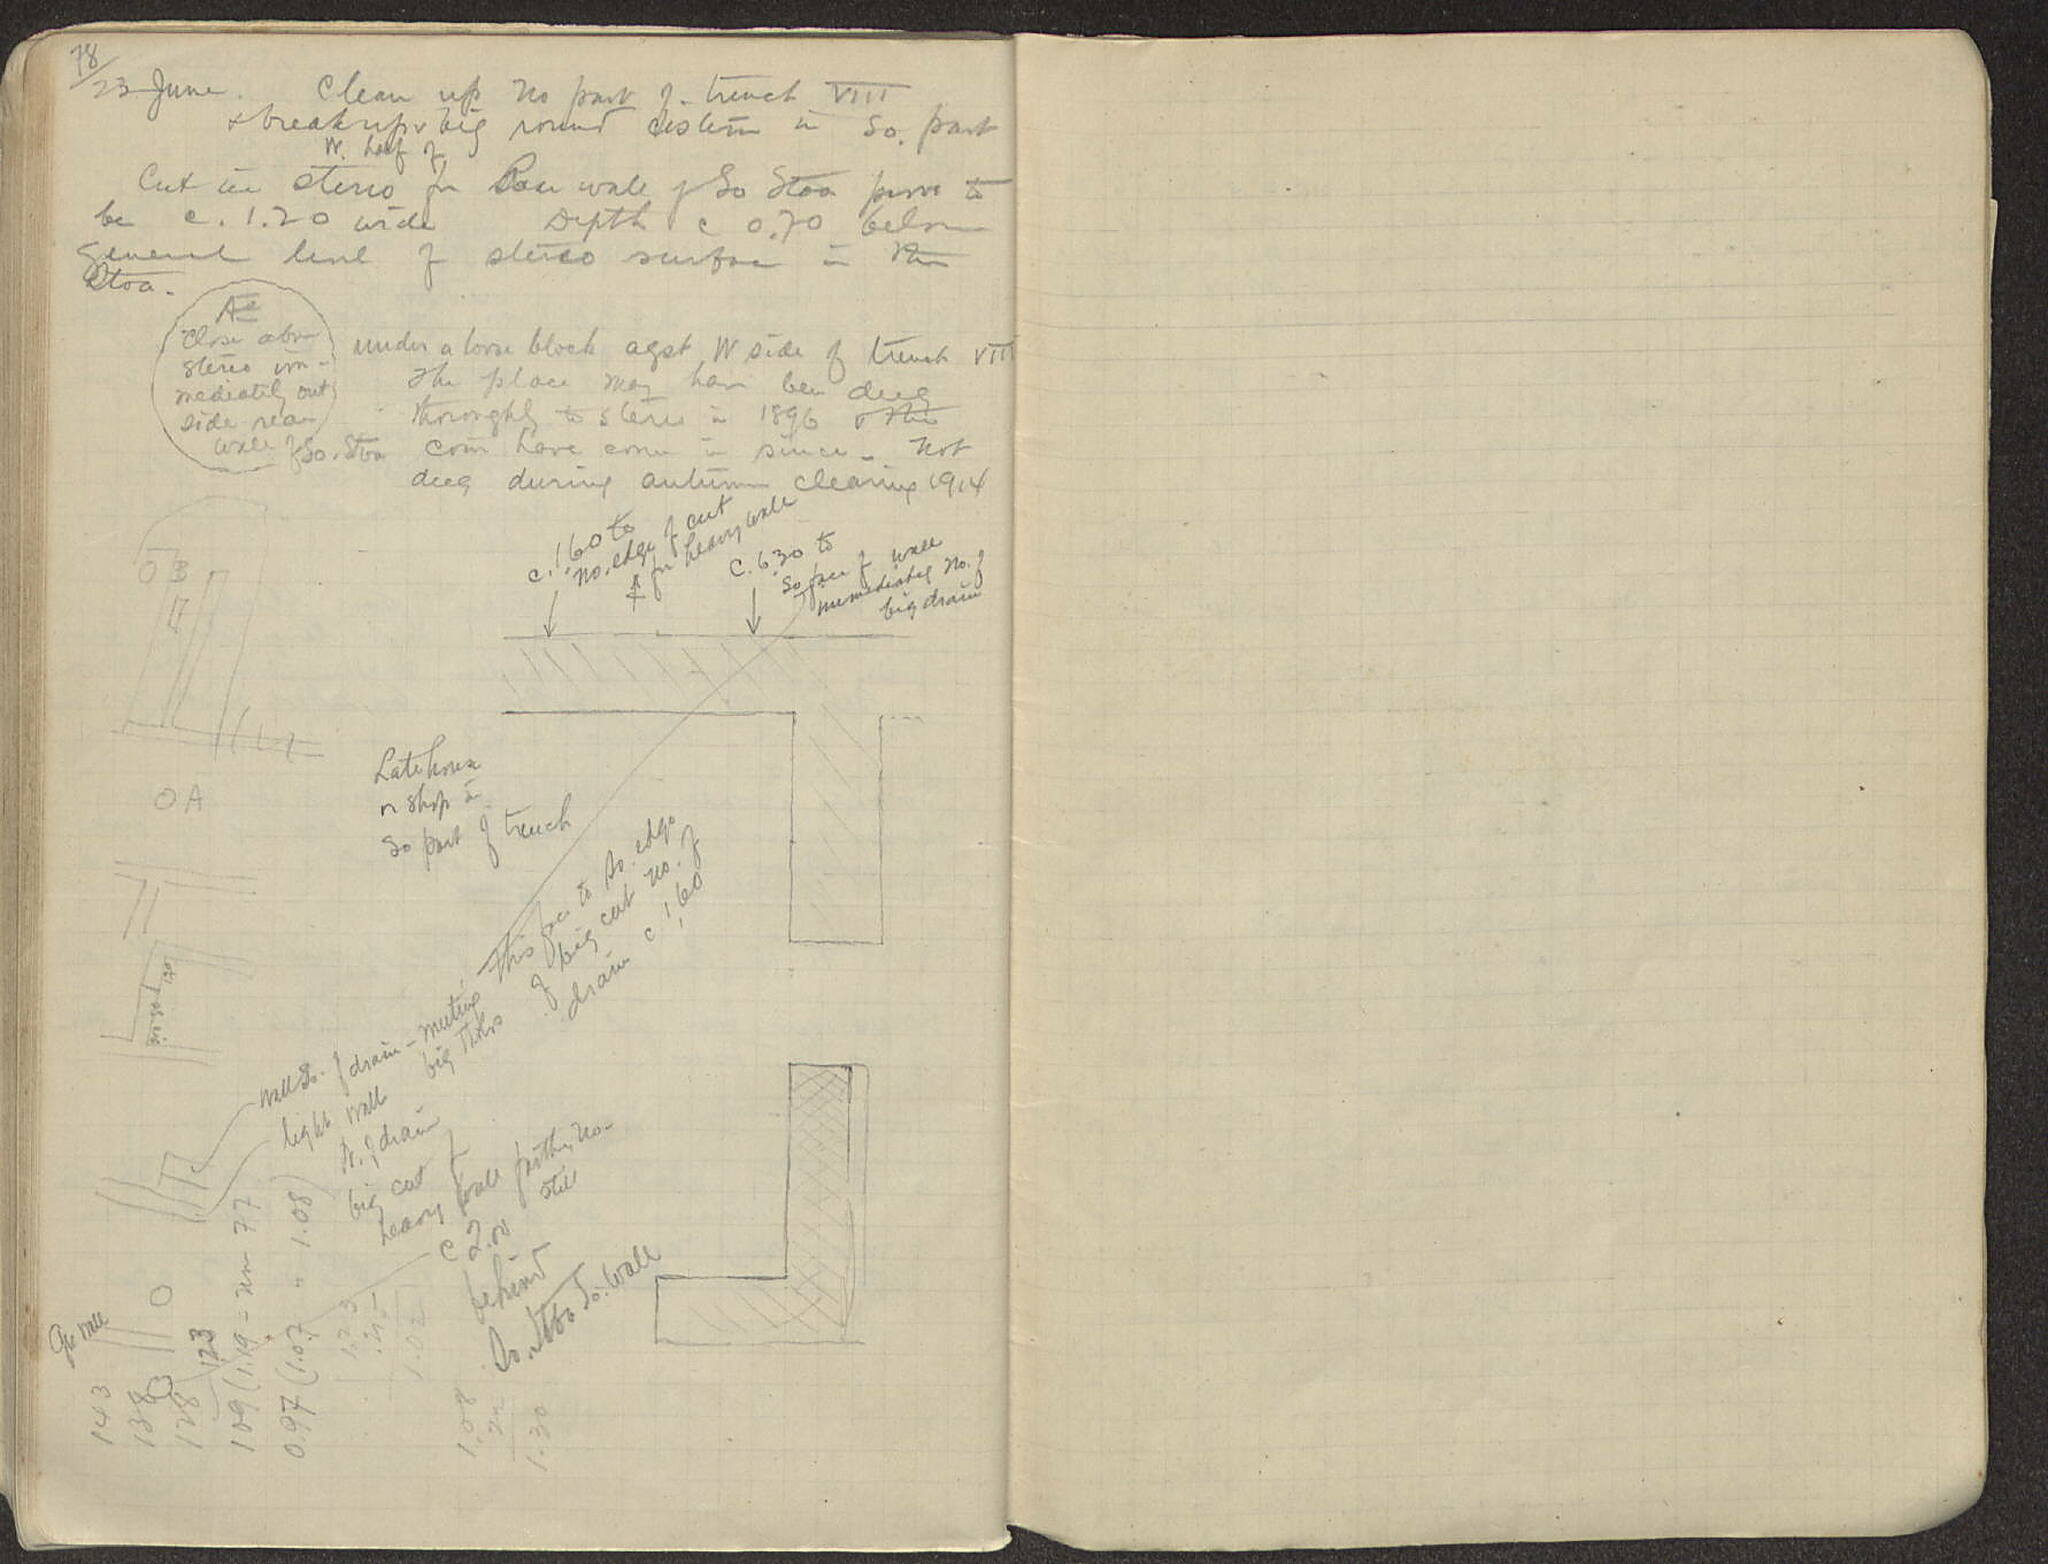 78
23 June. Clean up No part of trench VIII
& break up big round cistern in So. part
W. half of
Cut in stereo for Rear wall of So Stoa prove to
be c. 1.20 wide Depth c 0.70 below
general level of stereo surface in the
Stoa.
AE
Close above
stereo im-
mediately out
side rear
wall of So. Stoa
under a loose block agst W side of trench VIII
The place may have been dug
thoroughly to stereo in 1896 & the
coin have come in since - Not
dug during autumn clearing 1914
c. 1.60 to
no. edge of cut
for heavy wall
c. 6.30 to
So face of wall
immediately No. of
big drain
O B
Late house
or shop in
So part of trench
O A
This face to So. edge
of big cut No. of
drain c 1.60
Wall So. of drain - meeting
big this
light wall
N. of drain
big cut for
heavy wall farther No.
still
c 2.00
behind
So. Stoa So. wall
O
wall
143
138
128
123
109 (1.19 - 77
0.97 (1.07 " 1.08)
1.23
1.02
1.08
1.30